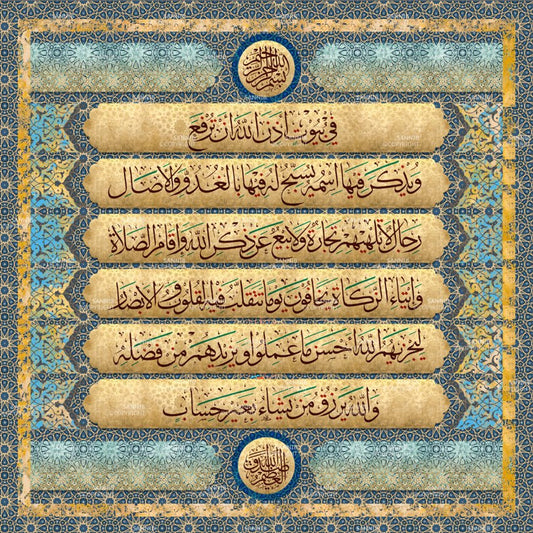 بسم الله الرحمن الرحيم
في بيوت أذن الله أن ترفع
ويذكر فيها اسمه يسبح له فيها بالغدو والآصال
رجال لا تلهيهم تجارة ولا بيع عن ذكر الله وإقام الصلاة
وإيتاء الزكاة يخافون يوما تتقلب فيه القلوب والأبصار
ليجزيهم الله أحسن ما عملوا ويزيدهم من فضله
والله يرزق من يشاء بغير حساب
صدق الله العظيم